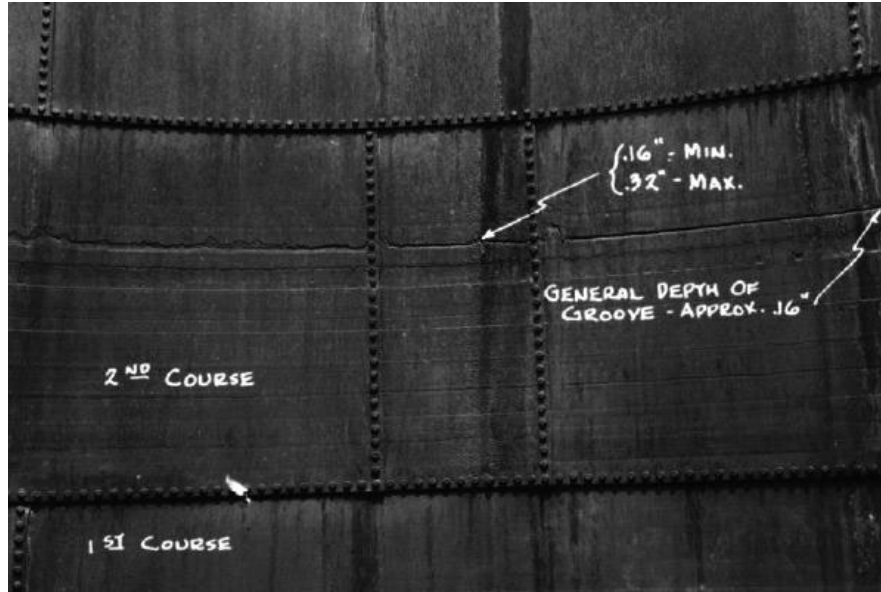 .16" - MIN.
.32" - MAX.
GENERAL DEPTH OF
GROOVE - APPROX. .16"
2ND COURSE
1ST COURSE